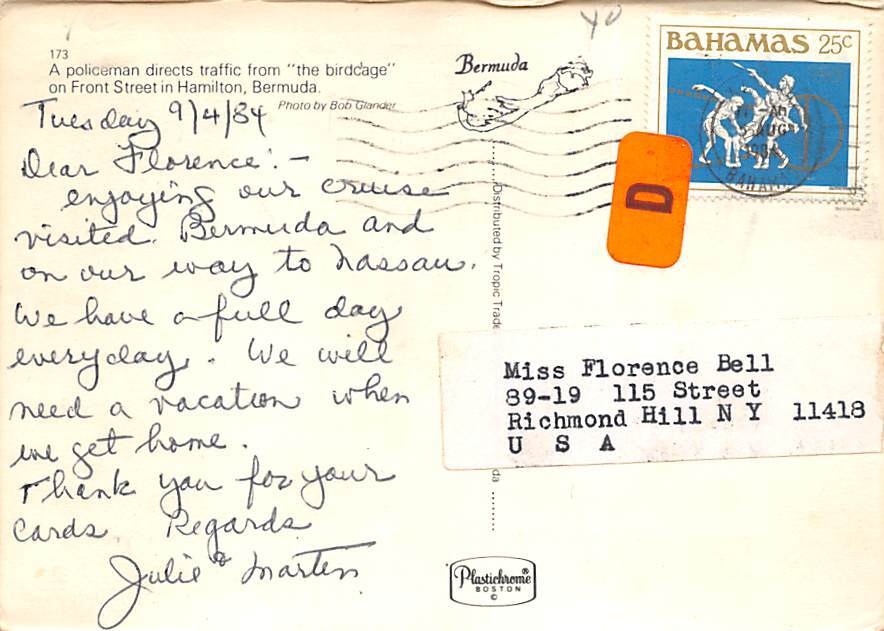 173
A policeman directs traffic from "the birdcage"
on Front Street in Hamilton, Bermuda.
Photo by Bob Glander
Tuesday 9/4/84
Dear Florence: -
enjoying our cruise
visited Bermuda and
on our way to Nassau.
We have a full day
everyday. We will
need a vacation when
we get home.
Thank you for your
cards. Regards
Julie & Martin
Bermuda
Distributed by Tropic Trade
da
Plastichrome®
BOSTON
©
40
BAHAMAS 25c
AUG
1984
BAHAMA
D
Miss Florence Bell
89-19 115 Street
Richmond Hill N Y 11418
U S A